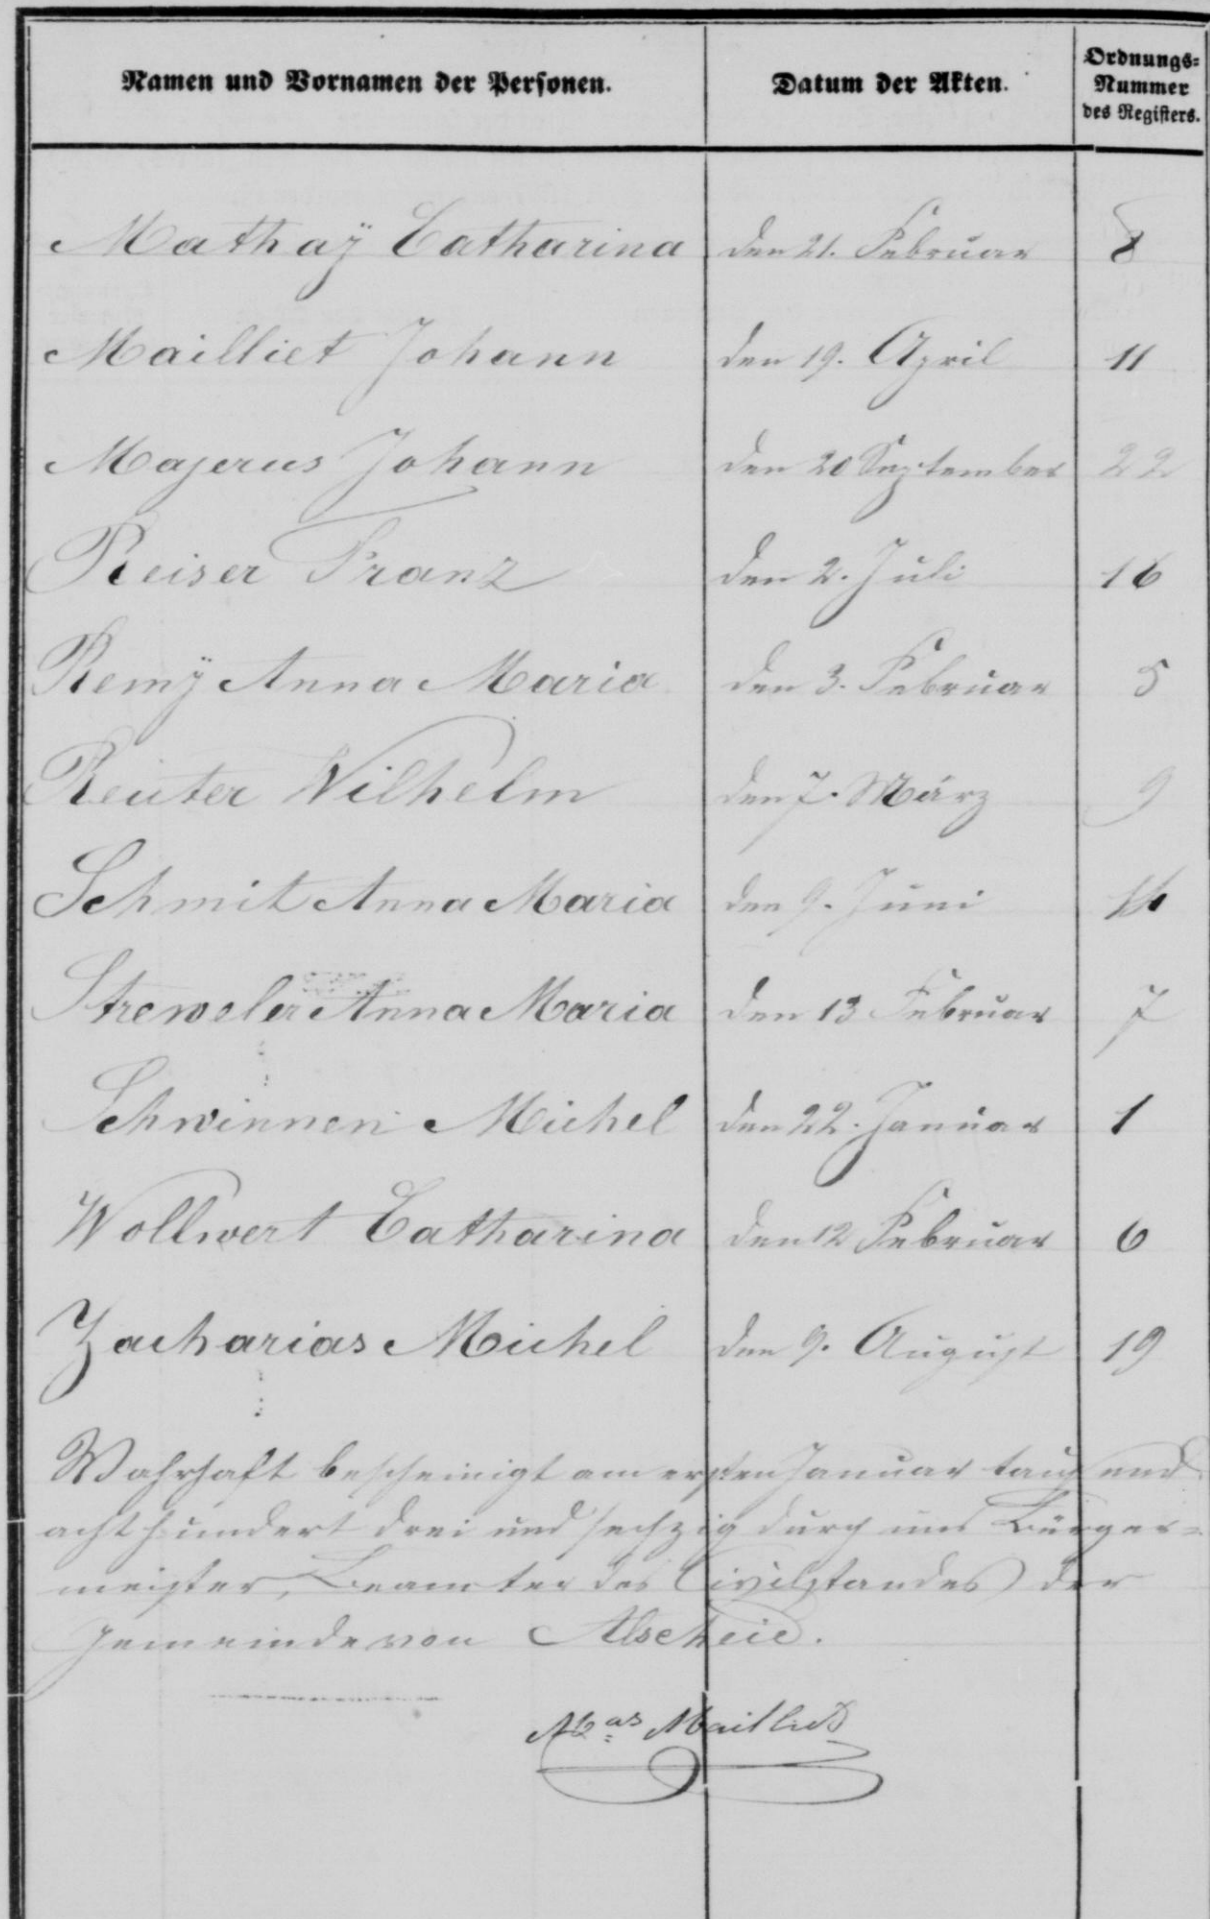 Namen und Vornamen der Personen. Datum der Akten. Ordnungs=
Nummer
des Registers.
Mathaÿ Catharina den 21. Februar 8
Mailliet Johann den 19. April 11
Majerus Johann den 20 September 22
Reiser Franz den 2. Juli 16
Remÿ Anna Maria den 3. Februar 5
Reuter Wilhelm den 7. März 9
Schmit Anna Maria den 9. Juni
Streweler Anna Maria den 13 Februar 7
Schwinnen Michel den 22. Januar 1
Wollwert Catharina den 12 Februar 6
Zacharias Michel den 9. August 19
Wahrhaft bescheinigt am ersten Januar tausend
achthundert drei und sechzig durch uns Bürger=
meister, Beamter des Civilstandes der
Gemeinde von Alscheid.
Mailliet